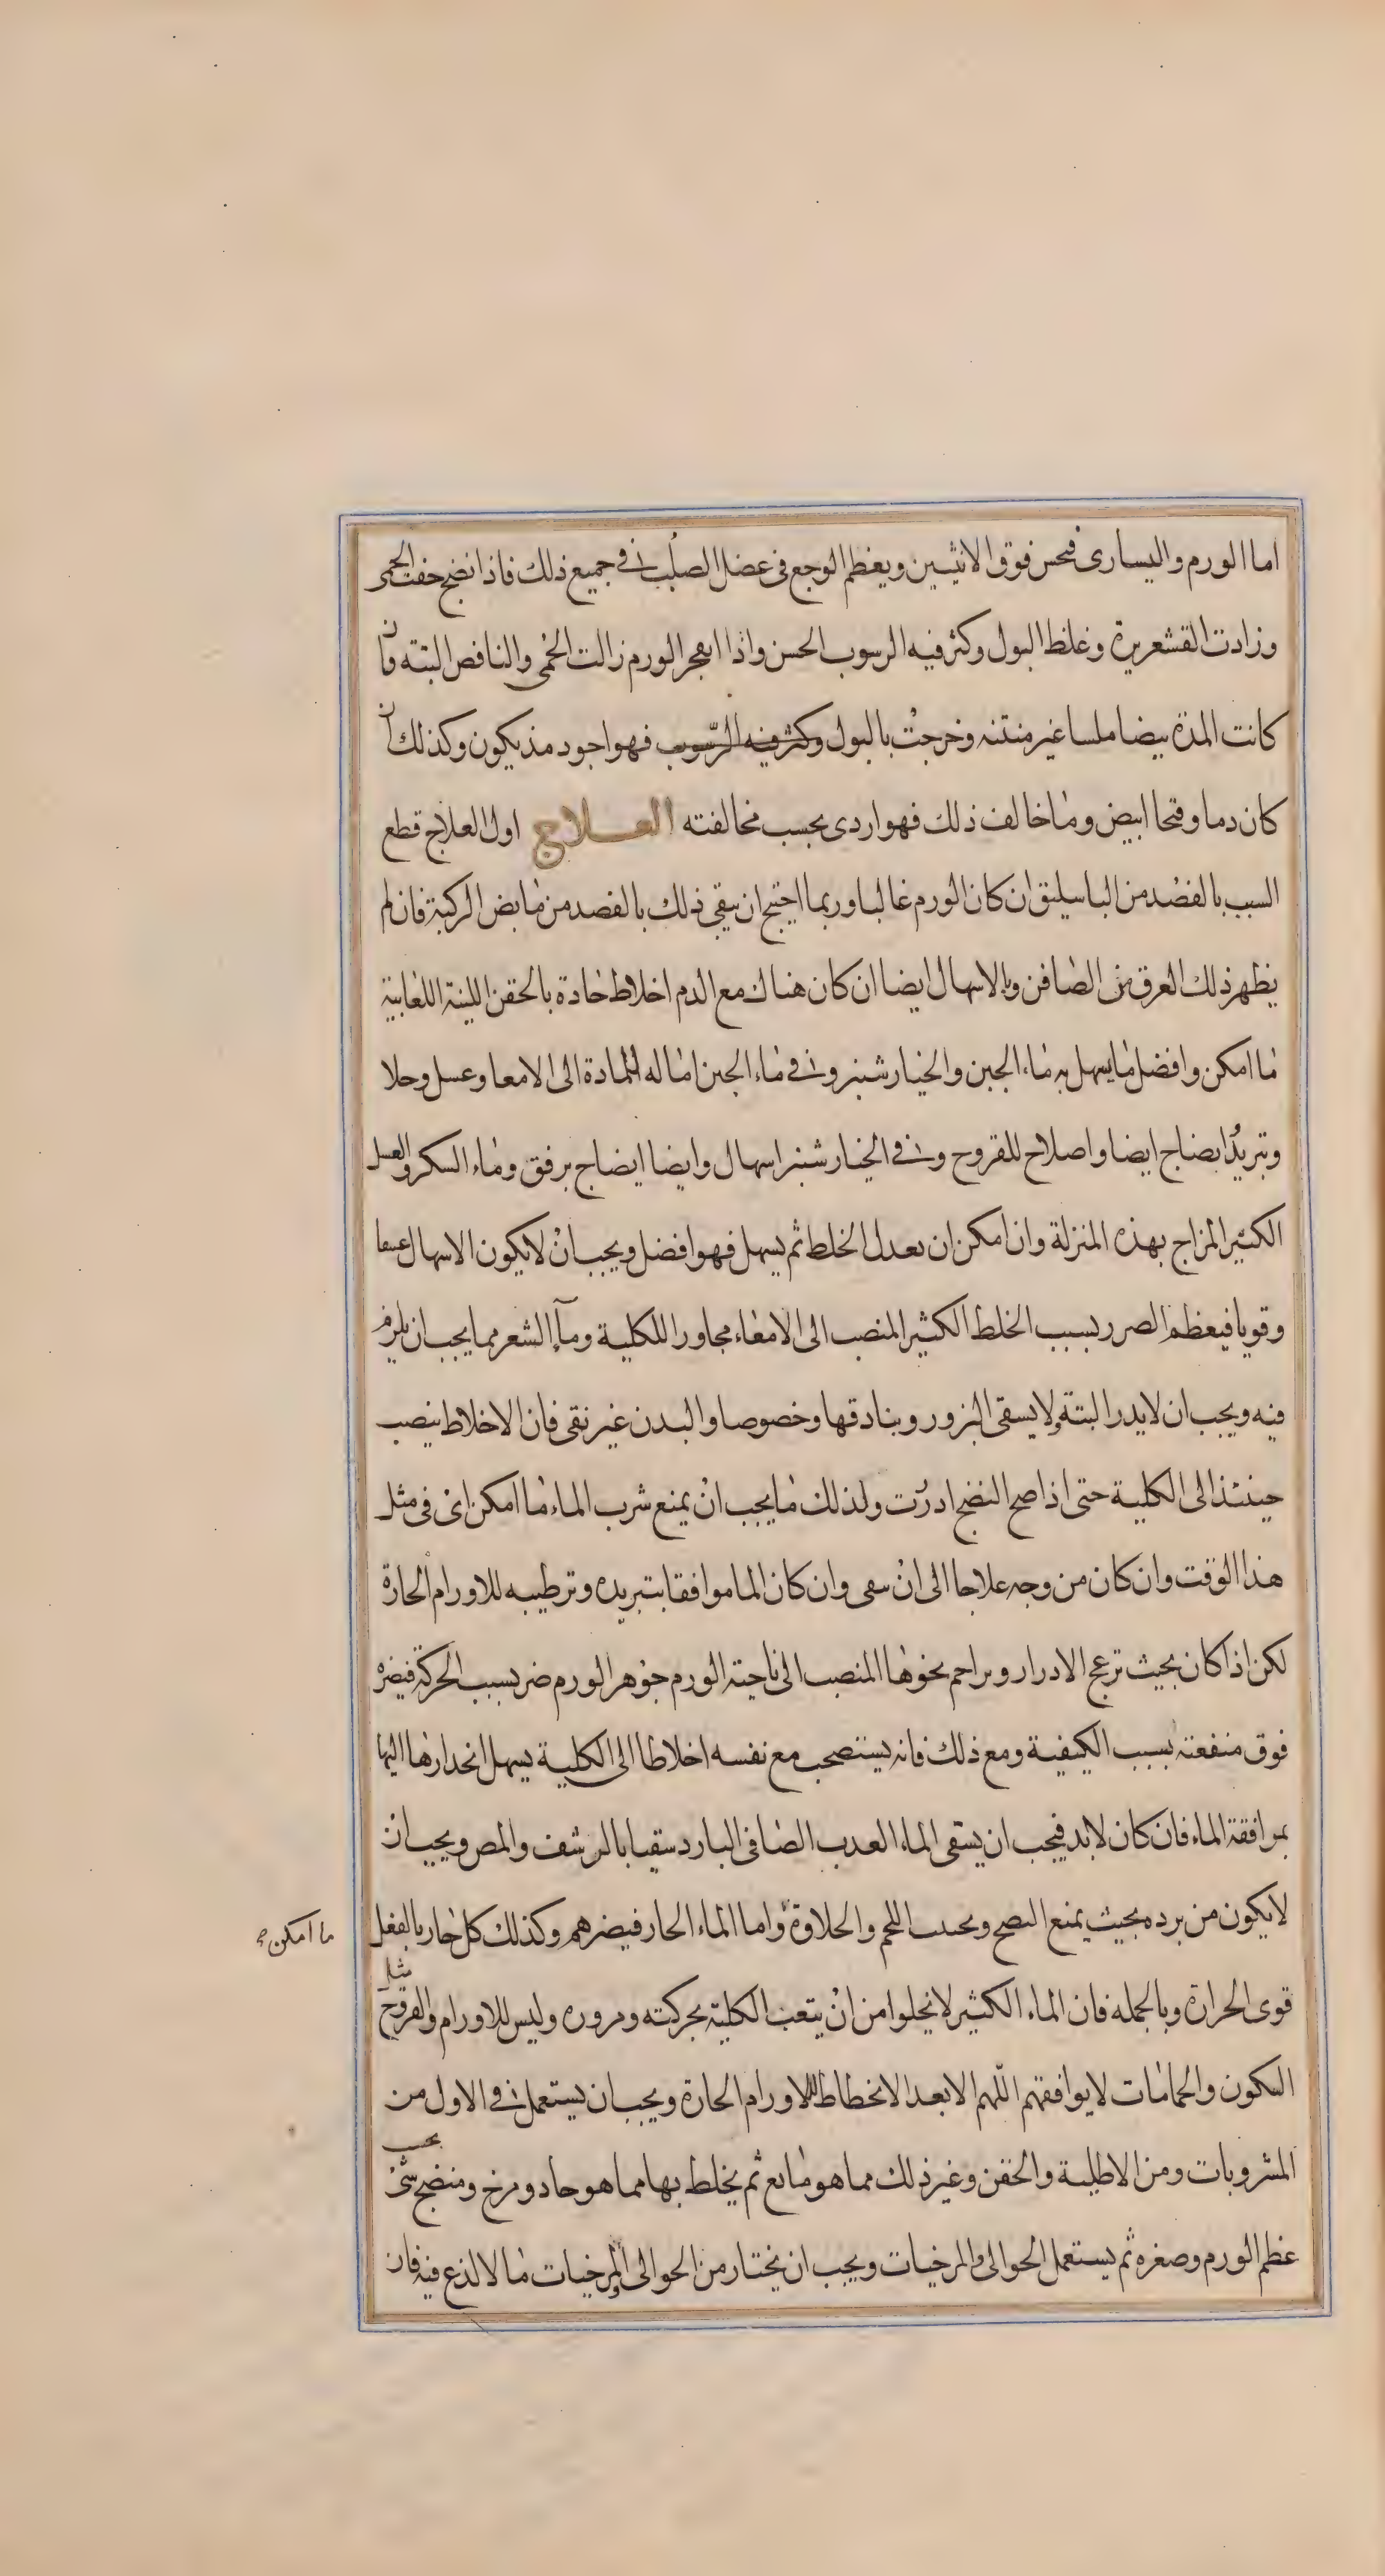 اما الورم واليسارى فيحس فوق الانثيين ويعظم الوجع فى عضل الصلب فى جميع ذلك فاذا نضج خفت الحمى
وزادت القشعريرة وغلظ البول وكثر فيه الرسوب الحسن واذا انفجر الورم زالت الحمى والنافض البتة فان
كانت المدة بيضا ملسا غير منتنه وخرجت بالبول وكثر فيه الرسوب فهو اجود مذ يكون وكذلك ان
كان دما وقيحا ابيض وما خالف ذلك فهو اردى بحسب مخالفته العلاج اول العلاج قطع
السبب بالفصد من الباسيليق ان كان الورم غالبا وربما احتيج ان يبقى ذلك بالفصد من مابض الركبة فان لم
يظهر ذلك العرق فمن الصافن وبالاسهال ايضا ان كان هناك مع الدم اخلاط حادة بالحقن اللينة اللعابية
ما امكن وافضل ما يسهل به ماء الجبن والخيار شنبر وفى ماء الجبن امالة للمادة الى الامعا وغسل وجلا
وتبريد انضاج ايضا واصلاح للقروح وفى الخيار شنبر اسهال وايضا انضاج برفق وماء السكر والعسل
الكثير المزاج بهذه المنزلة وان امكن ان يعدل الخلط ثم يسهل فهو افضل ويجب ان لا يكون الاسهال عنيفا
وقويا فيعظم الضرر بسبب الخلط الكثير المنصب الى الامعاء مجاورا للكلية وماء الشعر مما يجب ان يلزم
فيه ويجب ان لا يدر البتة ولا يسقى البزور وبنادقها وخصوصا والبدن غير نقى فان الاخلاط ينصب
حينئذ الى الكلية حتى اذا صح النضج ادرت ولذلك ما يجب ان يمنع شرب الماء ما امكن اى فى مثل
هذا الوقت وان كان من وجه علاجا الى ان سقى وان كان الما موافقا بتبريده وترطيبه للاورام الحارة
لكن اذا كان بحيث ترعج الادرار ويراحم بخوها المنصب الى ناحية الورم جوهر الورم ضر بسبب الحركة فيضره
فوق منفعته بسبب الكيفية ومع ذلك فانه يستصحب مع نفسه اخلاطا الى الكلية يسهل انحدارها اليها
بمرافقة الماء فان كان لابد فيجب ان يسقى الماء العذب الصافى البارد سقيا بالرشف والمص ويجب ان
لا يكون من برده بحيث يمنع النضج ويجنب اللحم والحلاوة واما الماء الحار فيضرهم وكذلك كل حار بالفعل
ما امكن
قوى الحرارة وبالجمله فان الماء الكثير لا يخلوا من ان يتعب الكلية بحركته ومروره وليس للاورام والقروح مثل
السكون والحمامات لا يوافقهم اللهم الا بعد الانحطاط للاورام الحارة ويجب ان يستعمل فى الاول من
المشروبات ومن الاطلية والحقن وغير ذلك مما هو مانع ثم يخلط بها مما هو حاد ومرخ ومنضج شئ بحسب
عظم الورم وصغره ثم يستعمل الحوالى والمرخيات ويجب ان يختار من الحوالى والمرخيات ما لا لذع فيه فان